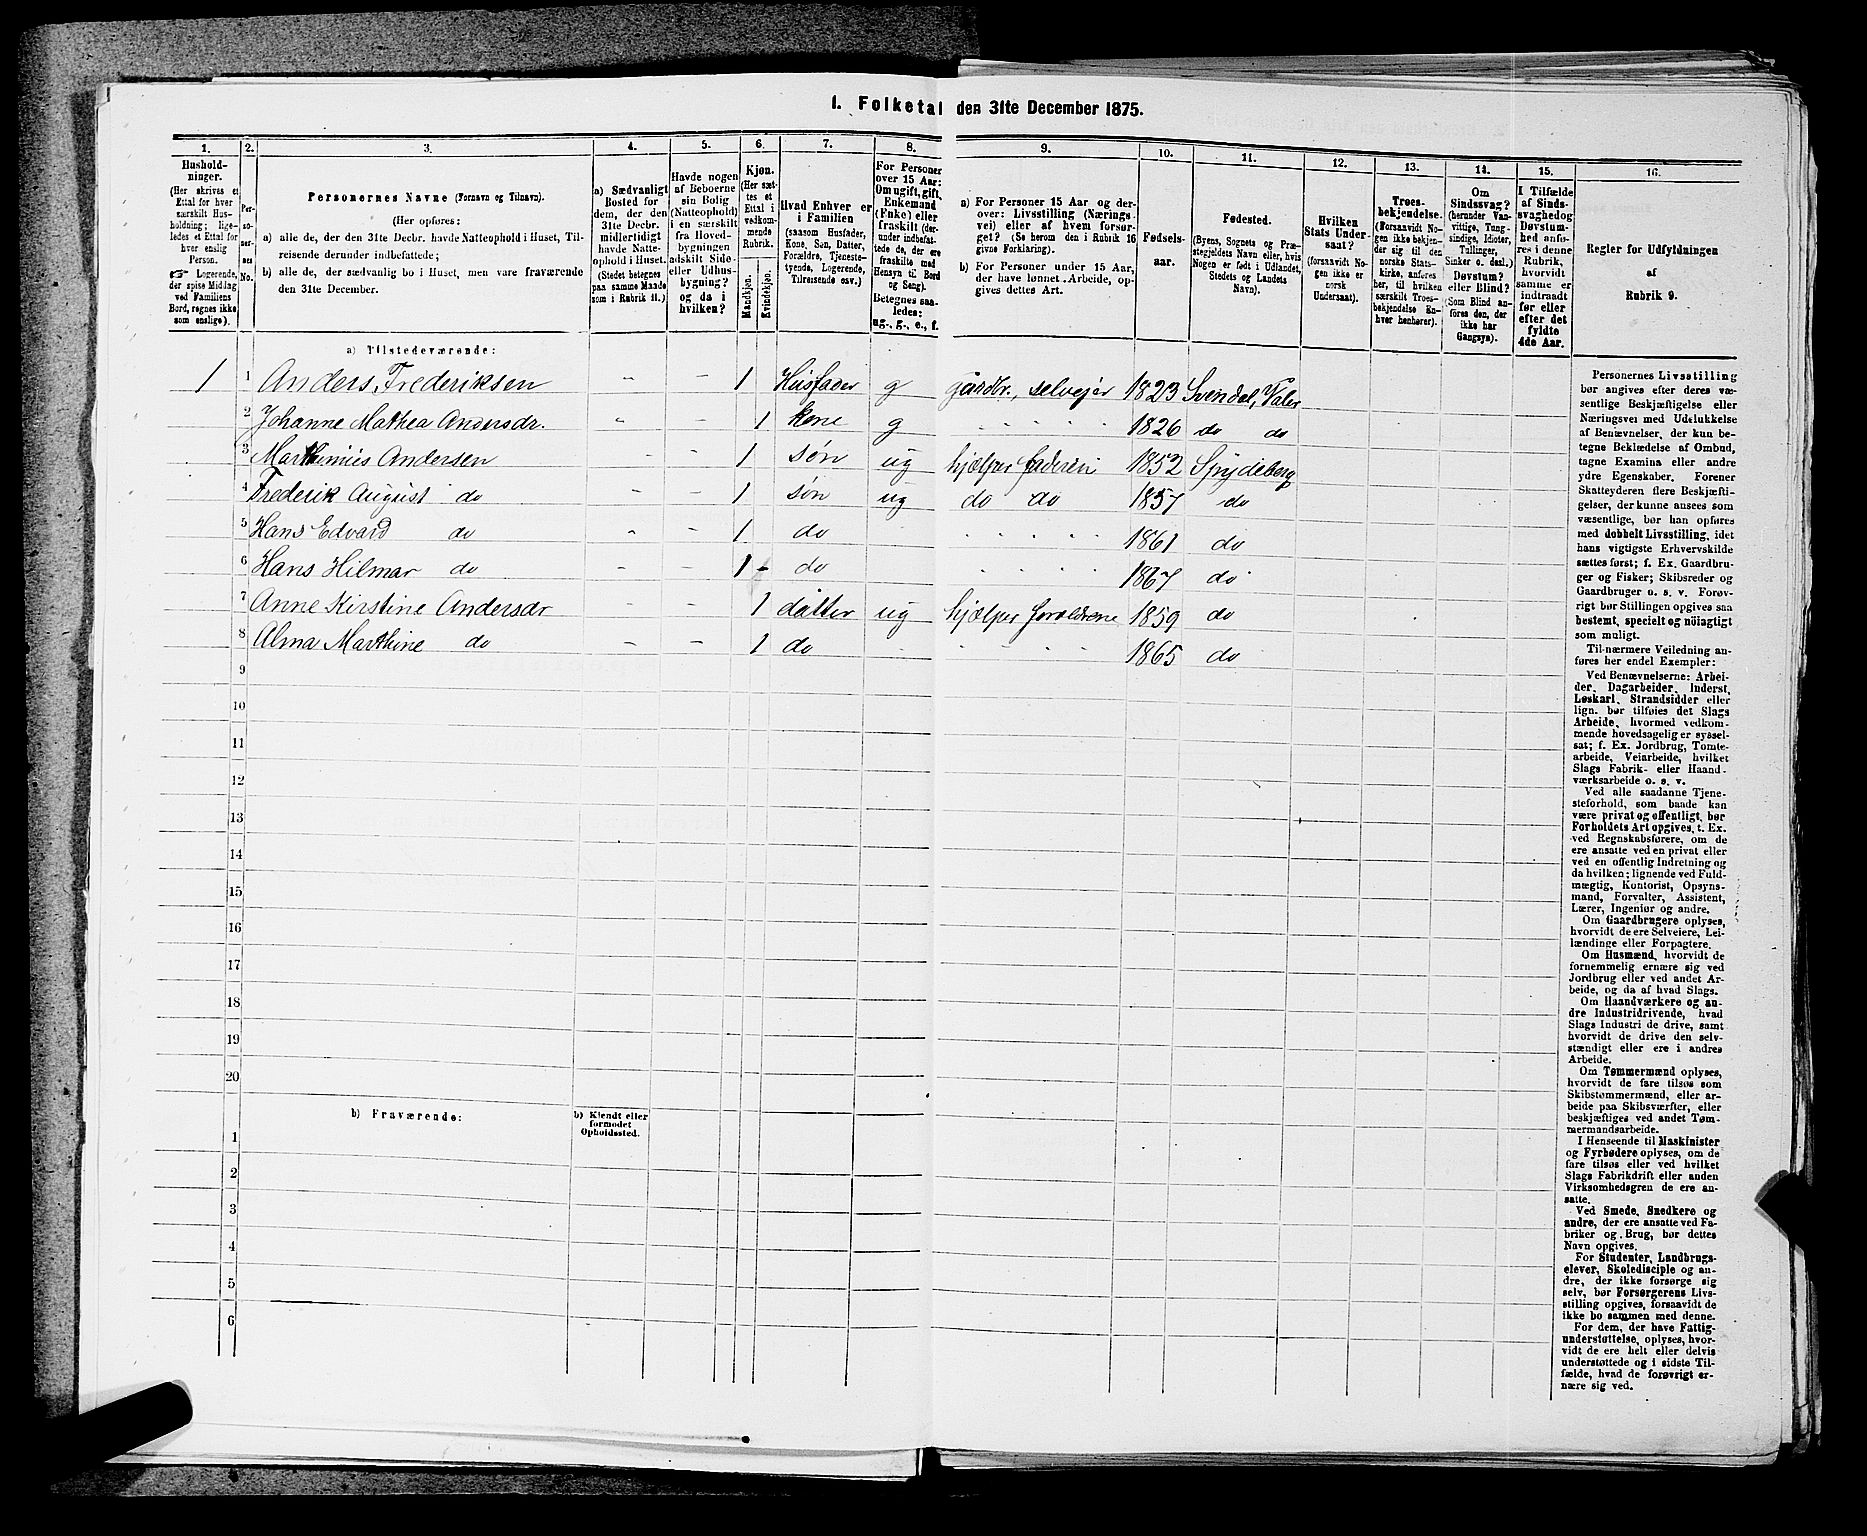 1. Folketal den 31te December 1875.
1. 2. 3. 4. 5. 6. 7. 8. 9. 10. 11. 12. 13. 14. 15. 16.
Hushold-
ninger.
(Her skrives et
Ettal for hver
særskilt Hus-
holdning; lige-
ledes et Ettal for
hver enslig
Person.
☞ Logerende,
der spise Middag
ved Familiens
Bord, regnes ikke
som enslige).
Per-
so-
ner-
nes
No.
Personernes Navne (Fornavn og Tilnavn).
(Her opføres:
a) alle de, der den 31te Decbr. havde Natteophold i Huset, Til-
reisende derunder indbefattede;
b) alle de, der sædvanlig bo i Huset, men vare fraværende
den 31te December.
a) Sædvanligt
Bosted for
dem, der den
31te Decbr.
midlertidigt
havde Natte-
ophold i Huset.
(Stedet betegnes
paa samme Maade
som i Rubrik 11.)
Havde nogen
af Beboerne
sin Bolig
(Natteophold)
i en særskilt
fra Hoved-
bygningen
adskilt Side-
eller Udhus-
bygning?
og da i
hvilken?
Kjøn.
(Her sæt-
tes et
Ettal i
vedkom-
mende
Rubrik.
Mandkjøn.
Kvindekjøn.
Hvad Enhver er
i Familien
(saasom Husfader,
Kone, Søn, Datter,
Forældre, Tjeneste-
tyende, Logerende,
Tilreisende osv.)
For Personer
over 15 Aar:
Om ugift, gift,
Enkemand
(Enke) eller
fraskilt (der-
under indbefat-
tede de, der ere
fraskilte med
Hensyn til Bord
og Seng).
Betegnes saa-
ledes:
ug., g., e., f.
a) For Personer 15 Aar og der-
over: Livsstilling (Nærings-
vei) eller af hvem forsør-
get? (Se herom den i Rubrik 16
givne Forklaring).
b) For Personer under 15 Aar,
der have lønnet Arbeide, op-
gives dettes Art.
Fødsels-
aar.
Fødested.
(Byens, Sognets og Præ-
stegjeldets Navn eller, hvis
Nogen er født i Udlandet,
Stedets og Landets
Navn).
Hvilken
Stats Under-
saat?
(forsaavidt No-
gen ikke er
norsk
Undersaat).
Troes-
bekjendelse.
(Forsaavidt No-
gen ikke bekjen-
der sig til den
norske Stats-
kirke, anføres
her, til hvilken
særskilt Troes-
bekjendelse En-
hver henhører).
Om
Sindssvag?
(herunder Van-
vittige, Tung-
sindige, Idioter,
Tullinger,
Sinker o. desl.)
Døvstum?
eller Blind?
(Som Blind an-
føres den, der
ikke har
Gangsyn).
I Tilfælde
af Sinds-
svaghed og
Døvstum-
hed anfø-
res i denne
Rubrik,
hvorvidt
samme er
indtraadt
før eller
efter det
fyldte
4de Aar.
Regler for Udfyldningen
af
Rubrik 9.
a) Tilstedeværende:
1 1 Anders Frederiksen " - 1 Husfader g gårdbr., selveier 1823 Svendal, Våler
2 Johanne Mathea Andersdr. " 1 kone g 1826 do do
3 Marthinius Andersen - - 1 søn ug hjælper faderen 1852 Spydeberg
4 Frederik August do - - 1 søn ug do do 1857 do
5 Hans Edvard do - - 1 do 1861 do
6 Hans Hilmar do - - 1 - do 1867 do
7 Anne Kirstine Andersdr - - 1 datter ug hjælper forældrene 1859 do
8 Alma Marthine do - - 1 do 1865 do
9
10
11
12
13
14
15
16
17
18
19
20
b) Fraværende:
b) Kjendt eller
formodet
Opholdssted.
1
2
3
4
5
6
Personernes Livsstilling
bør angives efter deres væ-
sentlige Beskjæftigelse eller
Næringsvei med Udelukkelse
af Benævnelser, der kun be-
tegne Beklædelse af Ombud,
tagne Examina eller andre
ydre Egenskaber. Forener
Skatteyderen flere Beskjæfti-
gelser, der kunne ansees som
væsentlige, bør han opføres
med dobbelt Livsstilling, idet
hans vigtigste Erhvervskilde
sættes først; f. Ex. Gaardbru-
ger og Fisker; Skibsreder og
Gaardbruger o. s. v. Forøv-
rigt bør Stillingen opgives saa
bestemt, specielt og nöiagtigt
som muligt.
Til nærmere Veiledning an-
føres her endel Exempler:
Ved Benævnelserne: Arbei-
der, Dagarbeider, Inderst,
Løskarl, Strandsidder eller
lign. bør tilføies det Slags
Arbeide, hvormed vedkom-
mende hovedsagelig er syssel-
sat; f. Ex. Jordbrug, Tomte-
arbeide, Veiarbeide, hvilket
Slags Fabrik- eller Haand-
værksarbeide o. s. v.
Ved alle saadanne Tjene-
steforhold, som baade kan
være privat og offentligt, bør
Forholdets Art opgives, t. Ex.
ved Regnskabsførere, om de
ere ansatte ved en privat eller
ved en offentlig Indretning og
da hvilken; lignende ved Fuld-
mægtig, Kontorist, Opsyns-
mand, Forvalter, Assistent,
Lærer, Ingeniør og andre.
Om Gaardbrugere oplyses,
hvorvidt de ere Selveiere, Lei-
lændinge eller Forpagtere.
Om Husmænd, hvorvidt de
fornemmelig ernære sig ved
Jordbrug eller ved andet Ar-
beide, og da af hvad Slags.
Om Haandværkere og an-
dre Industridrivende, hvad
Slags Industri de drive, samt
hvorvidt de drive den selv-
stændigt eller ere i andres
Arbeide.
Om Tømmermænd oplyses,
hvorvidt de fare tilsøs som
Skibstømmermænd, eller ar-
beide paa Skibsværfter, eller
beskjæftiges ved andet Tøm-
mermandsarbeide.
I Henseende til Maskinister
og Fyrbødere oplyses, om de
fare tilsøs eller ved hvilket
Slags Fabrikdrift eller anden
Virksomhedsgren de ere an-
satte.
Ved Smede, Snedkere og
andre, der ere ansatte ved Fa-
briker og Brug, bør dettes
Navn opgives.
For Studenter, Landbrugs-
elever, Skoledisciple og an-
dre, der ikke forsørge sig
selv, bør Forsørgerens Livs-
stilling opgives, forsaavidt de
ikke bo sammen med denne.
For dem, der have Fattig-
understøttelse, oplyses, hvor-
vidt de ere helt eller delvis
understøttede og i sidste Til-
fælde, hvad de forøvrigt er-
nære sig ved.